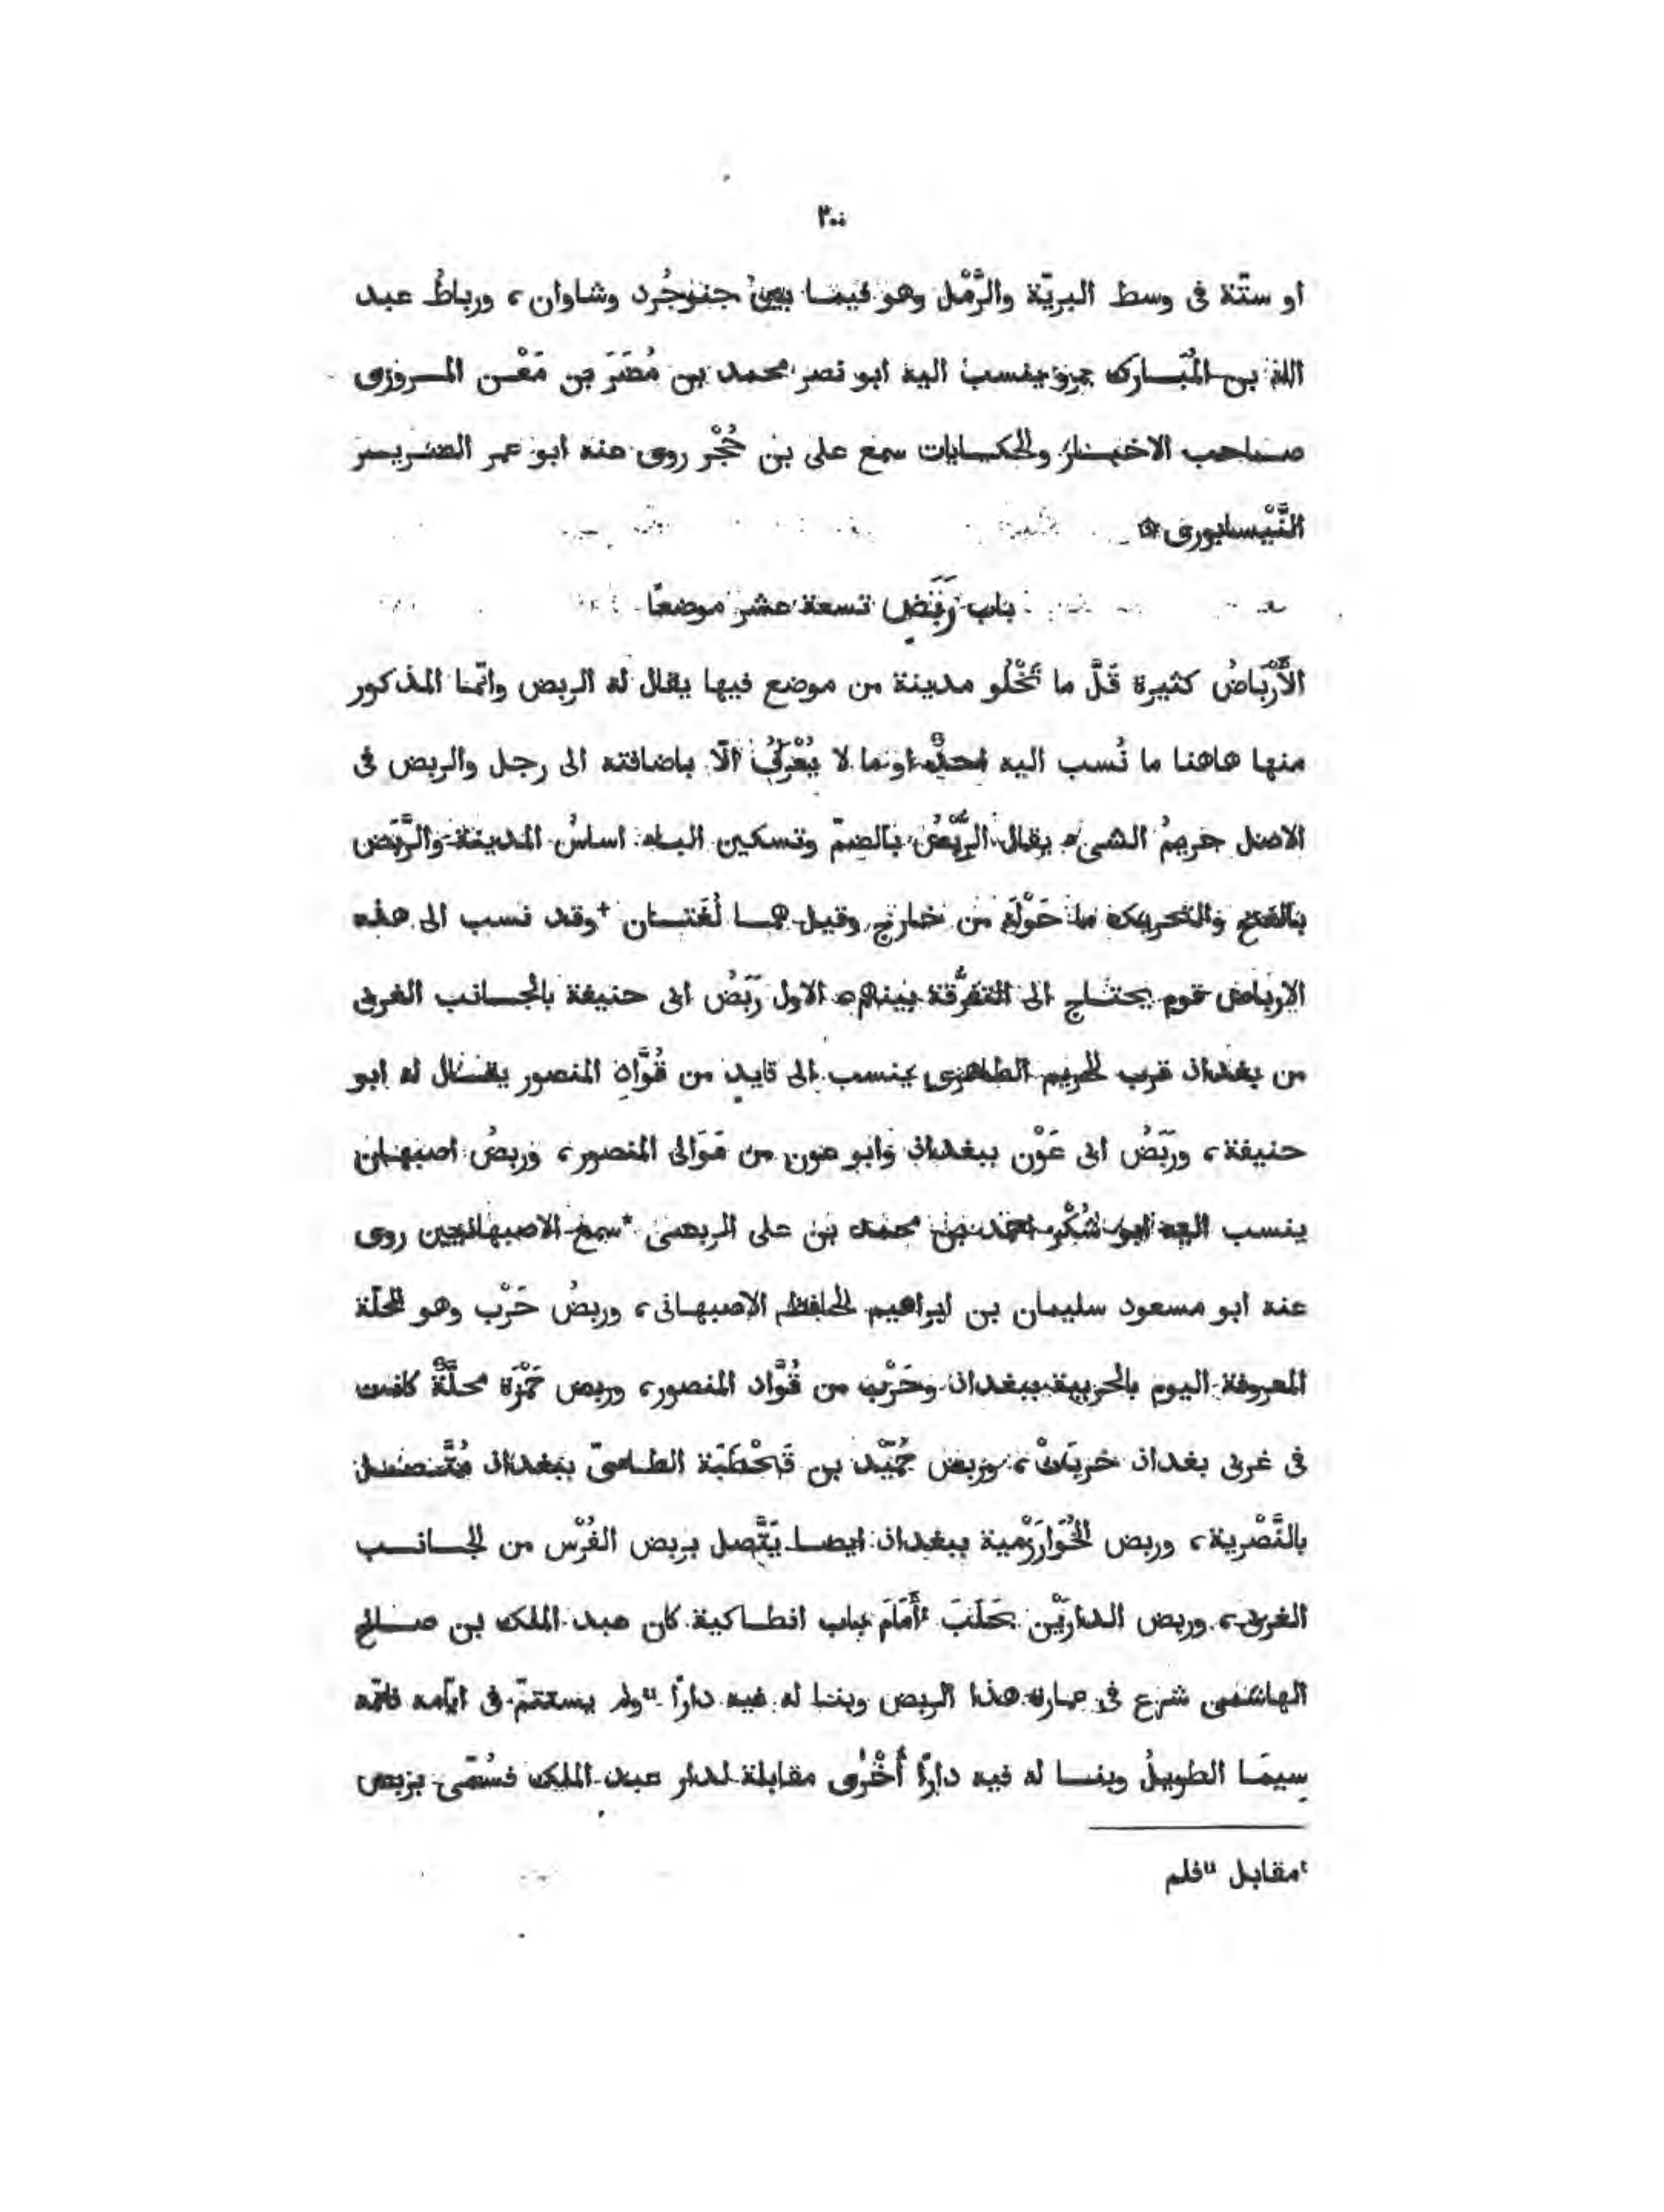 ٢٠٠
او ستّة فى وسط البريّة والرَّمْل وهو فيما بين جنوجُرد وشاوان، ورباطُ عبد
الله بن المُبَارك بمرو ينسب اليه ابو نصر محمد بن مُضَر بن مَعْن المروزى
صاحب الاخبار والحكايات سمع على بن حُجْر روى عنه ابو عمر الضرير
النَّيْسابورى ۞
باب رَبَضٍ تسعة عشر موضعًا
الأَرْبَاضُ كثيرة قَلَّ ما تَخْلُو مدينة من موضع فيها يقال له الربض وانّما المذكور
منها هاهنا ما نُسب اليه احدٌ او ما لا يُعْرَفُ الّا باضافته الى رجل والربض فى
الاصل حريمُ الشىء يقال الرُّبْضُ بالضمّ وتسكين الباء اساسُ المدينة والرَّبَض
بالفتح والتحريك ما حَوْلَهُ من خارج وقيل هما لُغَتان +وقد نسب الى هذه
الارباض قوم يحتاج الى التفرقة بينهم ۞ الاول رَبَضُ ابى حنيفة بالجانب الغربى
من بغداد قرب الحريم الطاهرى ينسب الى قايدٍ من قُوَّادِ المنصور يقال له ابو
حنيفة، ورَبَضُ ابى عَوْن ببغداد وابو عون من مَوَالى المنصور، وربضُ اصبهان
ينسب اليه ابو شُكْر احمد بن محمد بن على الربضى *سمع الاصبهانيين روى
عنه ابو مسعود سليمان بن ابراهيم الحافظ الاصبهانى، وربضُ حَرْب وهو المحلّة
المعروفة اليوم بالحربية ببغداد وحَرْب من قُوَّاد المنصور، وربض حَمْزَة محلَّةٌ كانت
فى غربى بغداد خربَتْ، وربض حُمَيْد بن قَحْطَبَة الطاءىّ ببغداد مُتَّصل
بالنَّصْرية، وربض الخُوَارَزْمية ببغداد ايضا يَتَّصل بربض الفُرْس من الجانب
الغربى، وربض الدارَيْن بحَلَبَ ᵗأَمَامَ باب انطاكية كان عبد الملك بن صالح
الهاشمى شرع فى عمارة هذا الربض وبنا له فيه دارًا ᵘولم يستتمّ فى ايّامه فاتمّه
سِيمَا الطويلُ وبنا له فيه دارًا أُخْرٰى مقابلة لدار عبد الملك فسُمّى بربض
ᵗمقابل ᵘفلم